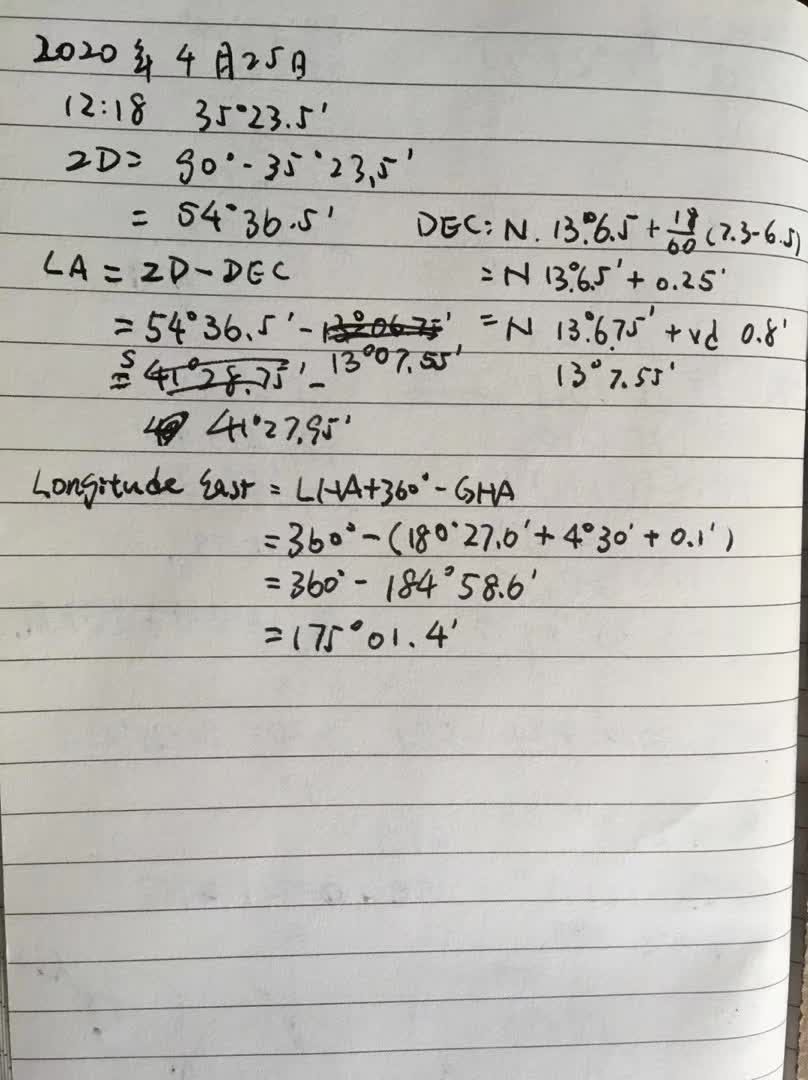 2020年4月25日
12:18 35°23.5'
ZD= 90°-35°23,5'
= 54°36.5'
DEC: N. 13°6.5 + 18/60 (7.3-6.5)
LA = ZD-DEC
= N 13°6.5' + 0.25'
= 54°36.5' - 13°06.75'
= N 13°6.75' + vd 0.8'
13°07.55'
S
= 41°28.75' -
13°7.55'
41°27.95'
Longitude East = LHA+360°-GHA
= 360°-(180°27.0'+4°30'+0.1')
= 360° - 184°58.6'
= 175°01.4'